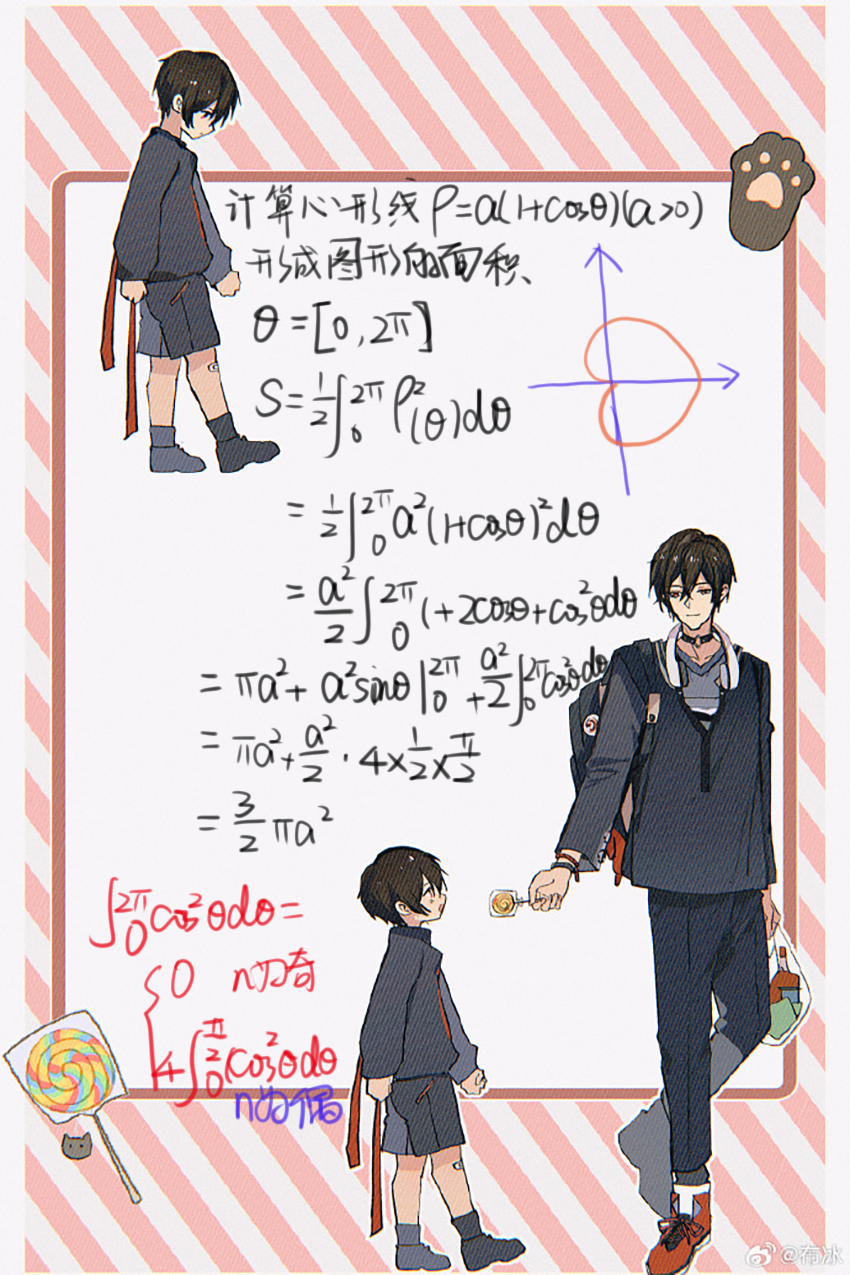 计算心形线 ρ=a(1+cosθ)(a>0)
形成图形的面积、
θ=[0,2π]
S=½∫₀^2π ρ²(θ)dθ
=½∫₀^2π a²(1+cosθ)²dθ
=a²/2∫₀^2π (+2cosθ+cos²θdθ
=πa²+a²sinθ|₀^2π+a²/2∫₀^2π cos²θdθ
=πa²+a²/2·4×½×π/2
=3/2πa²
∫₀^2π cos²θdθ=
{0 n为奇
4∫₀^π/2 cos²θdθ
n为偶
@布冰